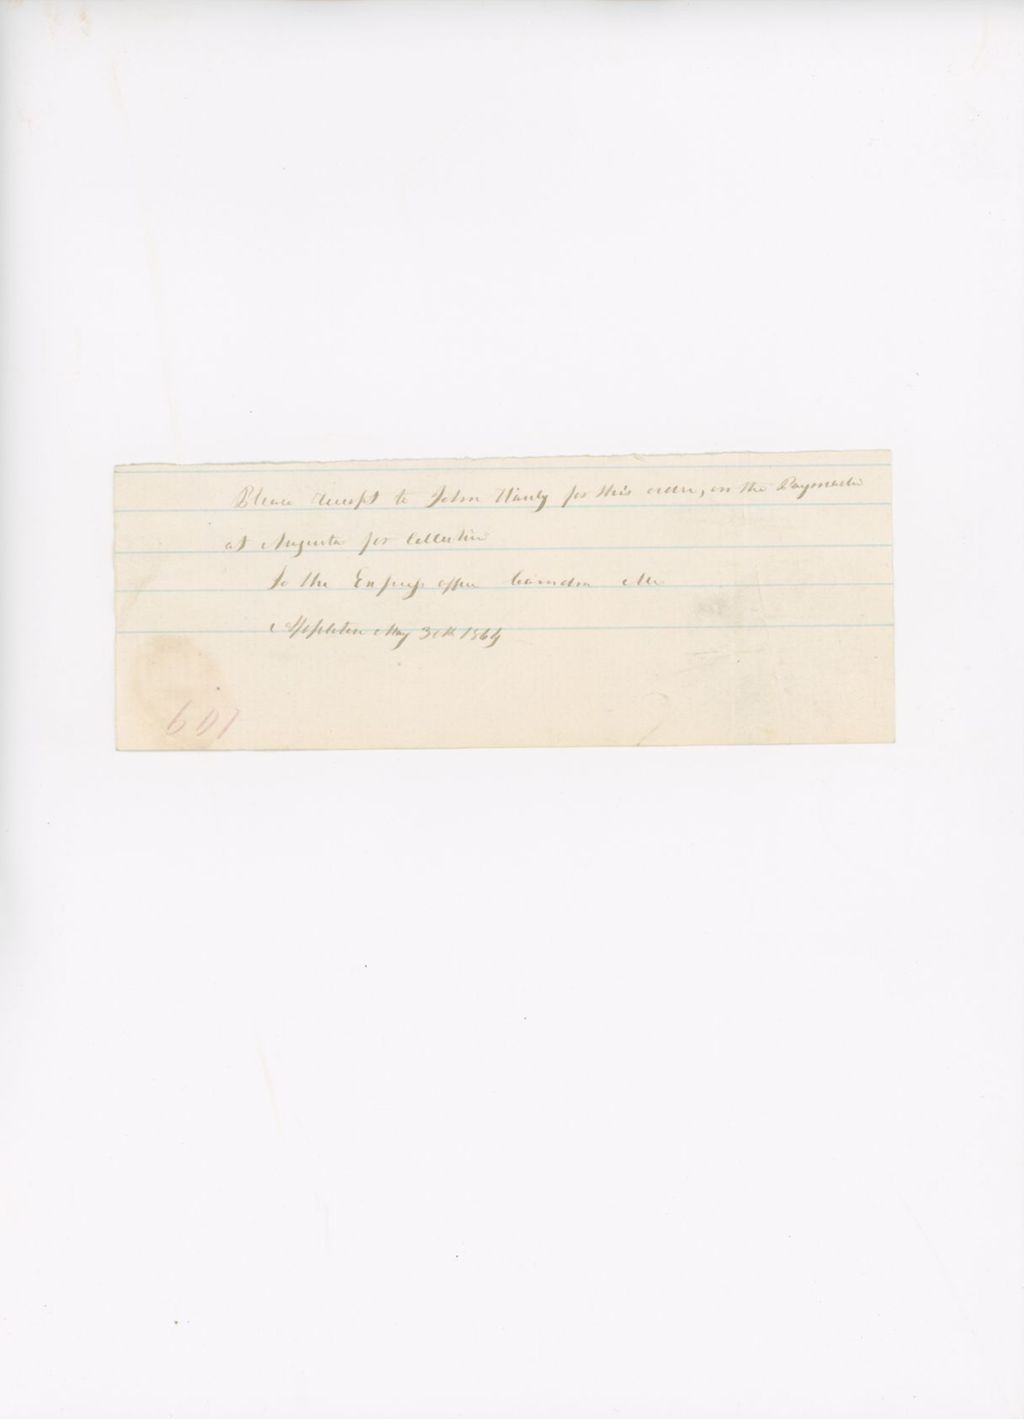 Please receipt to John Hanly for this order, on the Paymaster
at Augusta for Collection
To the Express office Camden Me
Appleton May 30th 1864
601